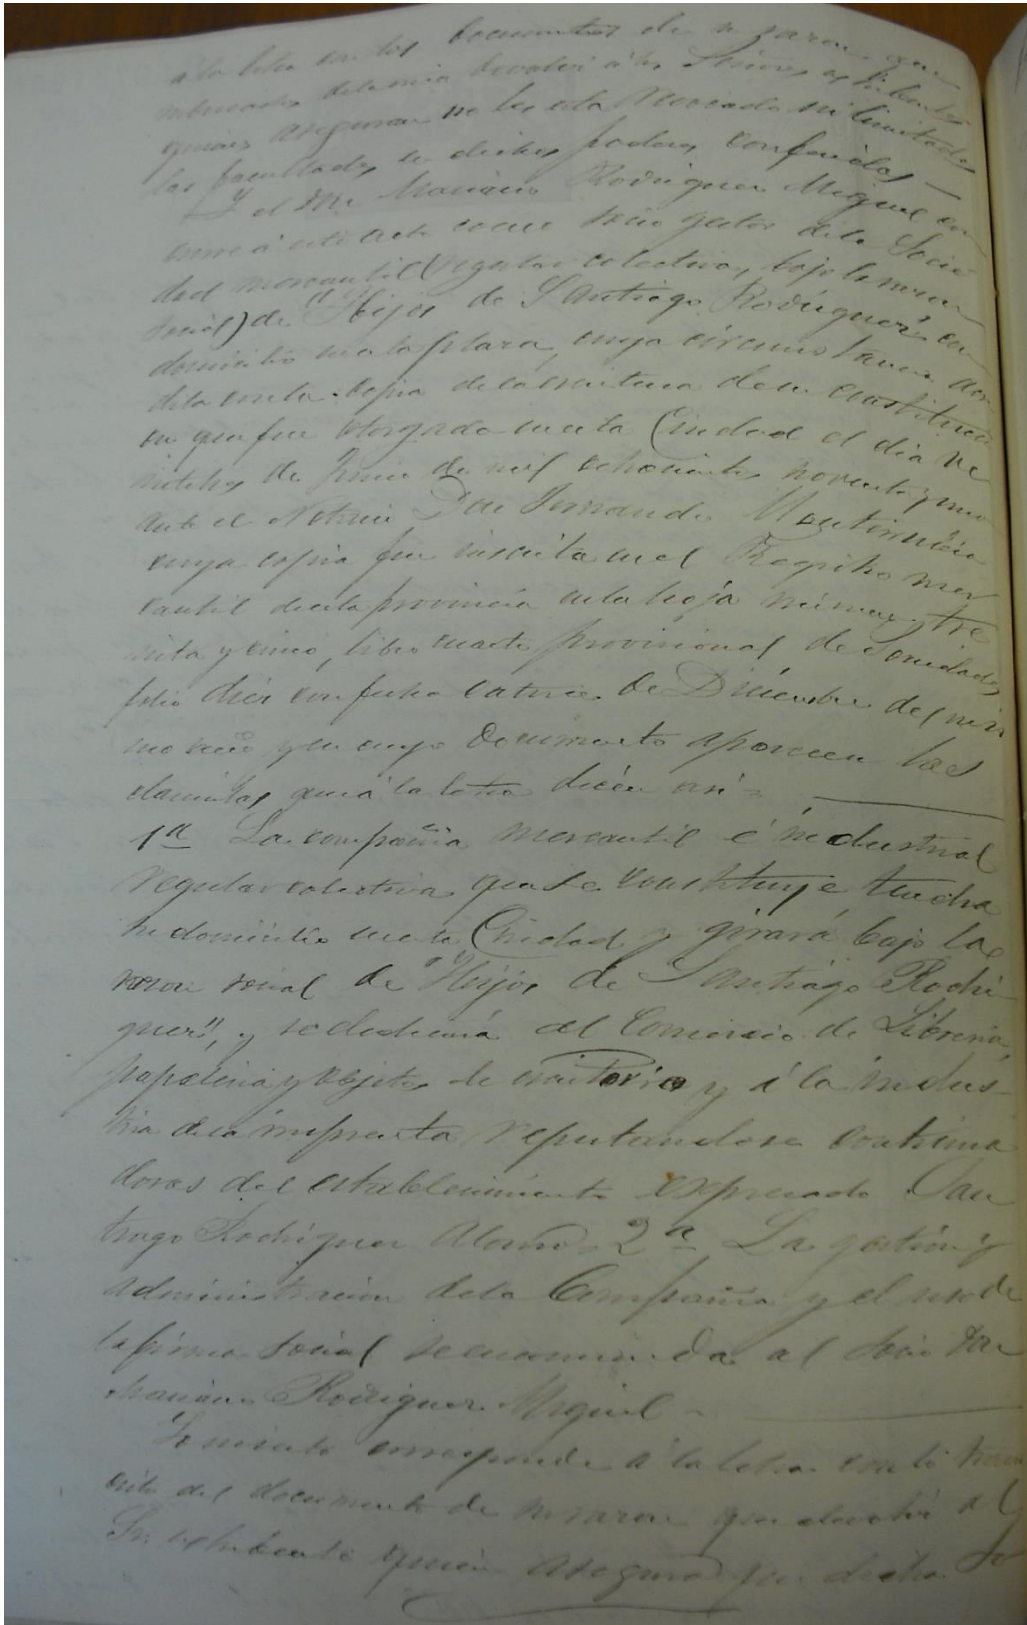 á la letra con los documentos de su razon que
rubricados de la mia devolví á los Señores exhibentes
quienes aseguran no les está revocada ni limitadas
las facultades en dichos poderes conferidos —
Y el Sr. Mariano Rodriguez Miguel con
curre á este acto como socio gestor de la Socie
dad mercantil (regular colectiva, bajo la razon
social) de "Hijos de Santiago Rodriguez" con
domicilio en esta plaza, cuya circunstancia acre
dita con la copia de la escritura de su constitucion
en que fue otorgada en esta Ciudad el dia ve
de Junio de mil ochocientos noventa y uno
ante el Notario Don Fernando
cuya copia fue inscrita en el Registro mer
cantil de esta provincia en la hoja número tre
inta y cinco, libro cuarto provisional de Sociedades
folio diez con fecha catorce de Diciembre del mis
mo año y en cuyo documento aparecen las
clausulas que á la letra dicen asi = —
1ª La compañia mercantil é industrial
regular colectiva que se constituye tendra
su domicilio en esta Ciudad y girará bajo la
razon social de "Hijos de Santiago Rodri
guez", y se dedicará al Comercio de Libreria,
papeleria y objetos de escritorio y á la indus-
tria de la imprenta reputandose continua
dores del establecimiento expresado San
tiago Rodriguez Alonso. 2ª La gestión y
administracion de la Compañia y el uso de
la firma social se encomienda al Socio Don
Mariano Rodriguez Miguel — —
Lo inserto corresponde á la letra con lo
del documento de su razon que devolví al
Sr. exhibente quien asegura que dicha So